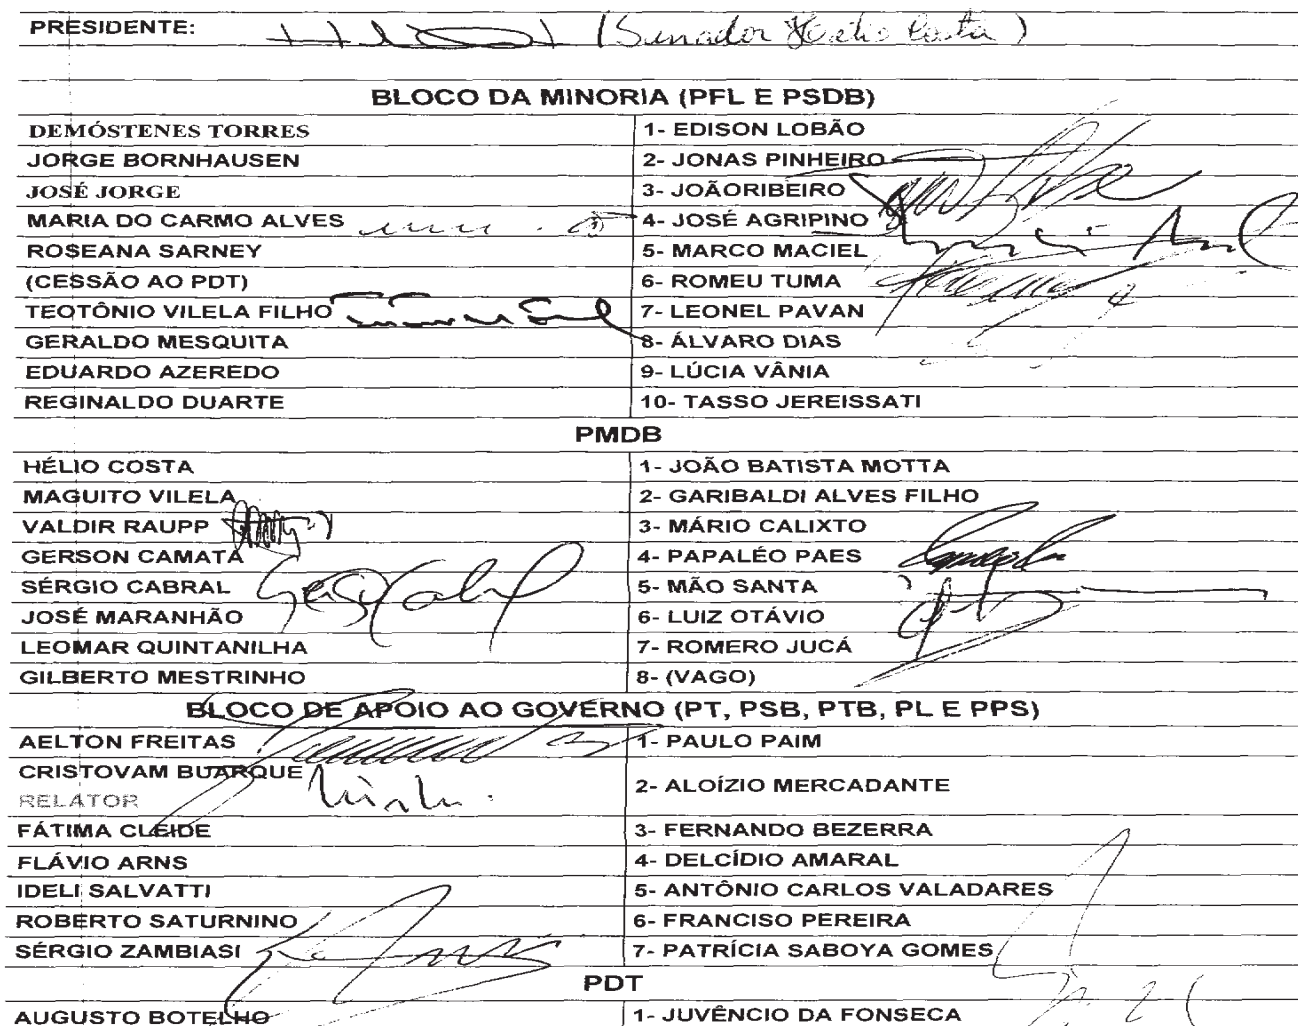 PRESIDENTE: (Senador Hélio Costa)
BLOCO DA MINORIA (PFL E PSDB)
DEMÓSTENES TORRES 1- EDISON LOBÃO
JORGE BORNHAUSEN 2- JONAS PINHEIRO
JOSÉ JORGE 3- JOÃORIBEIRO
MARIA DO CARMO ALVES 4- JOSÉ AGRIPINO
ROSEANA SARNEY 5- MARCO MACIEL
(CESSÃO AO PDT) 6- ROMEU TUMA
TEOTÔNIO VILELA FILHO 7- LEONEL PAVAN
GERALDO MESQUITA 8- ÁLVARO DIAS
EDUARDO AZEREDO 9- LÚCIA VÂNIA
REGINALDO DUARTE 10- TASSO JEREISSATI
PMDB
HÉLIO COSTA 1- JOÃO BATISTA MOTTA
MAGUITO VILELA 2- GARIBALDI ALVES FILHO
VALDIR RAUPP 3- MÁRIO CALIXTO
GERSON CAMATA 4- PAPALÉO PAES
SÉRGIO CABRAL 5- MÃO SANTA
JOSÉ MARANHÃO 6- LUIZ OTÁVIO
LEOMAR QUINTANILHA 7- ROMERO JUCÁ
GILBERTO MESTRINHO 8- (VAGO)
BLOCO DE APOIO AO GOVERNO (PT, PSB, PTB, PL E PPS)
AELTON FREITAS 1- PAULO PAIM
CRISTOVAM BUARQUE
RELATOR 2- ALOÍZIO MERCADANTE
FÁTIMA CLEIDE 3- FERNANDO BEZERRA
FLÁVIO ARNS 4- DELCÍDIO AMARAL
IDELI SALVATTI 5- ANTÔNIO CARLOS VALADARES
ROBERTO SATURNINO 6- FRANCISO PEREIRA
SÉRGIO ZAMBIASI 7- PATRÍCIA SABOYA GOMES
PDT
AUGUSTO BOTELHO 1- JUVÊNCIO DA FONSECA